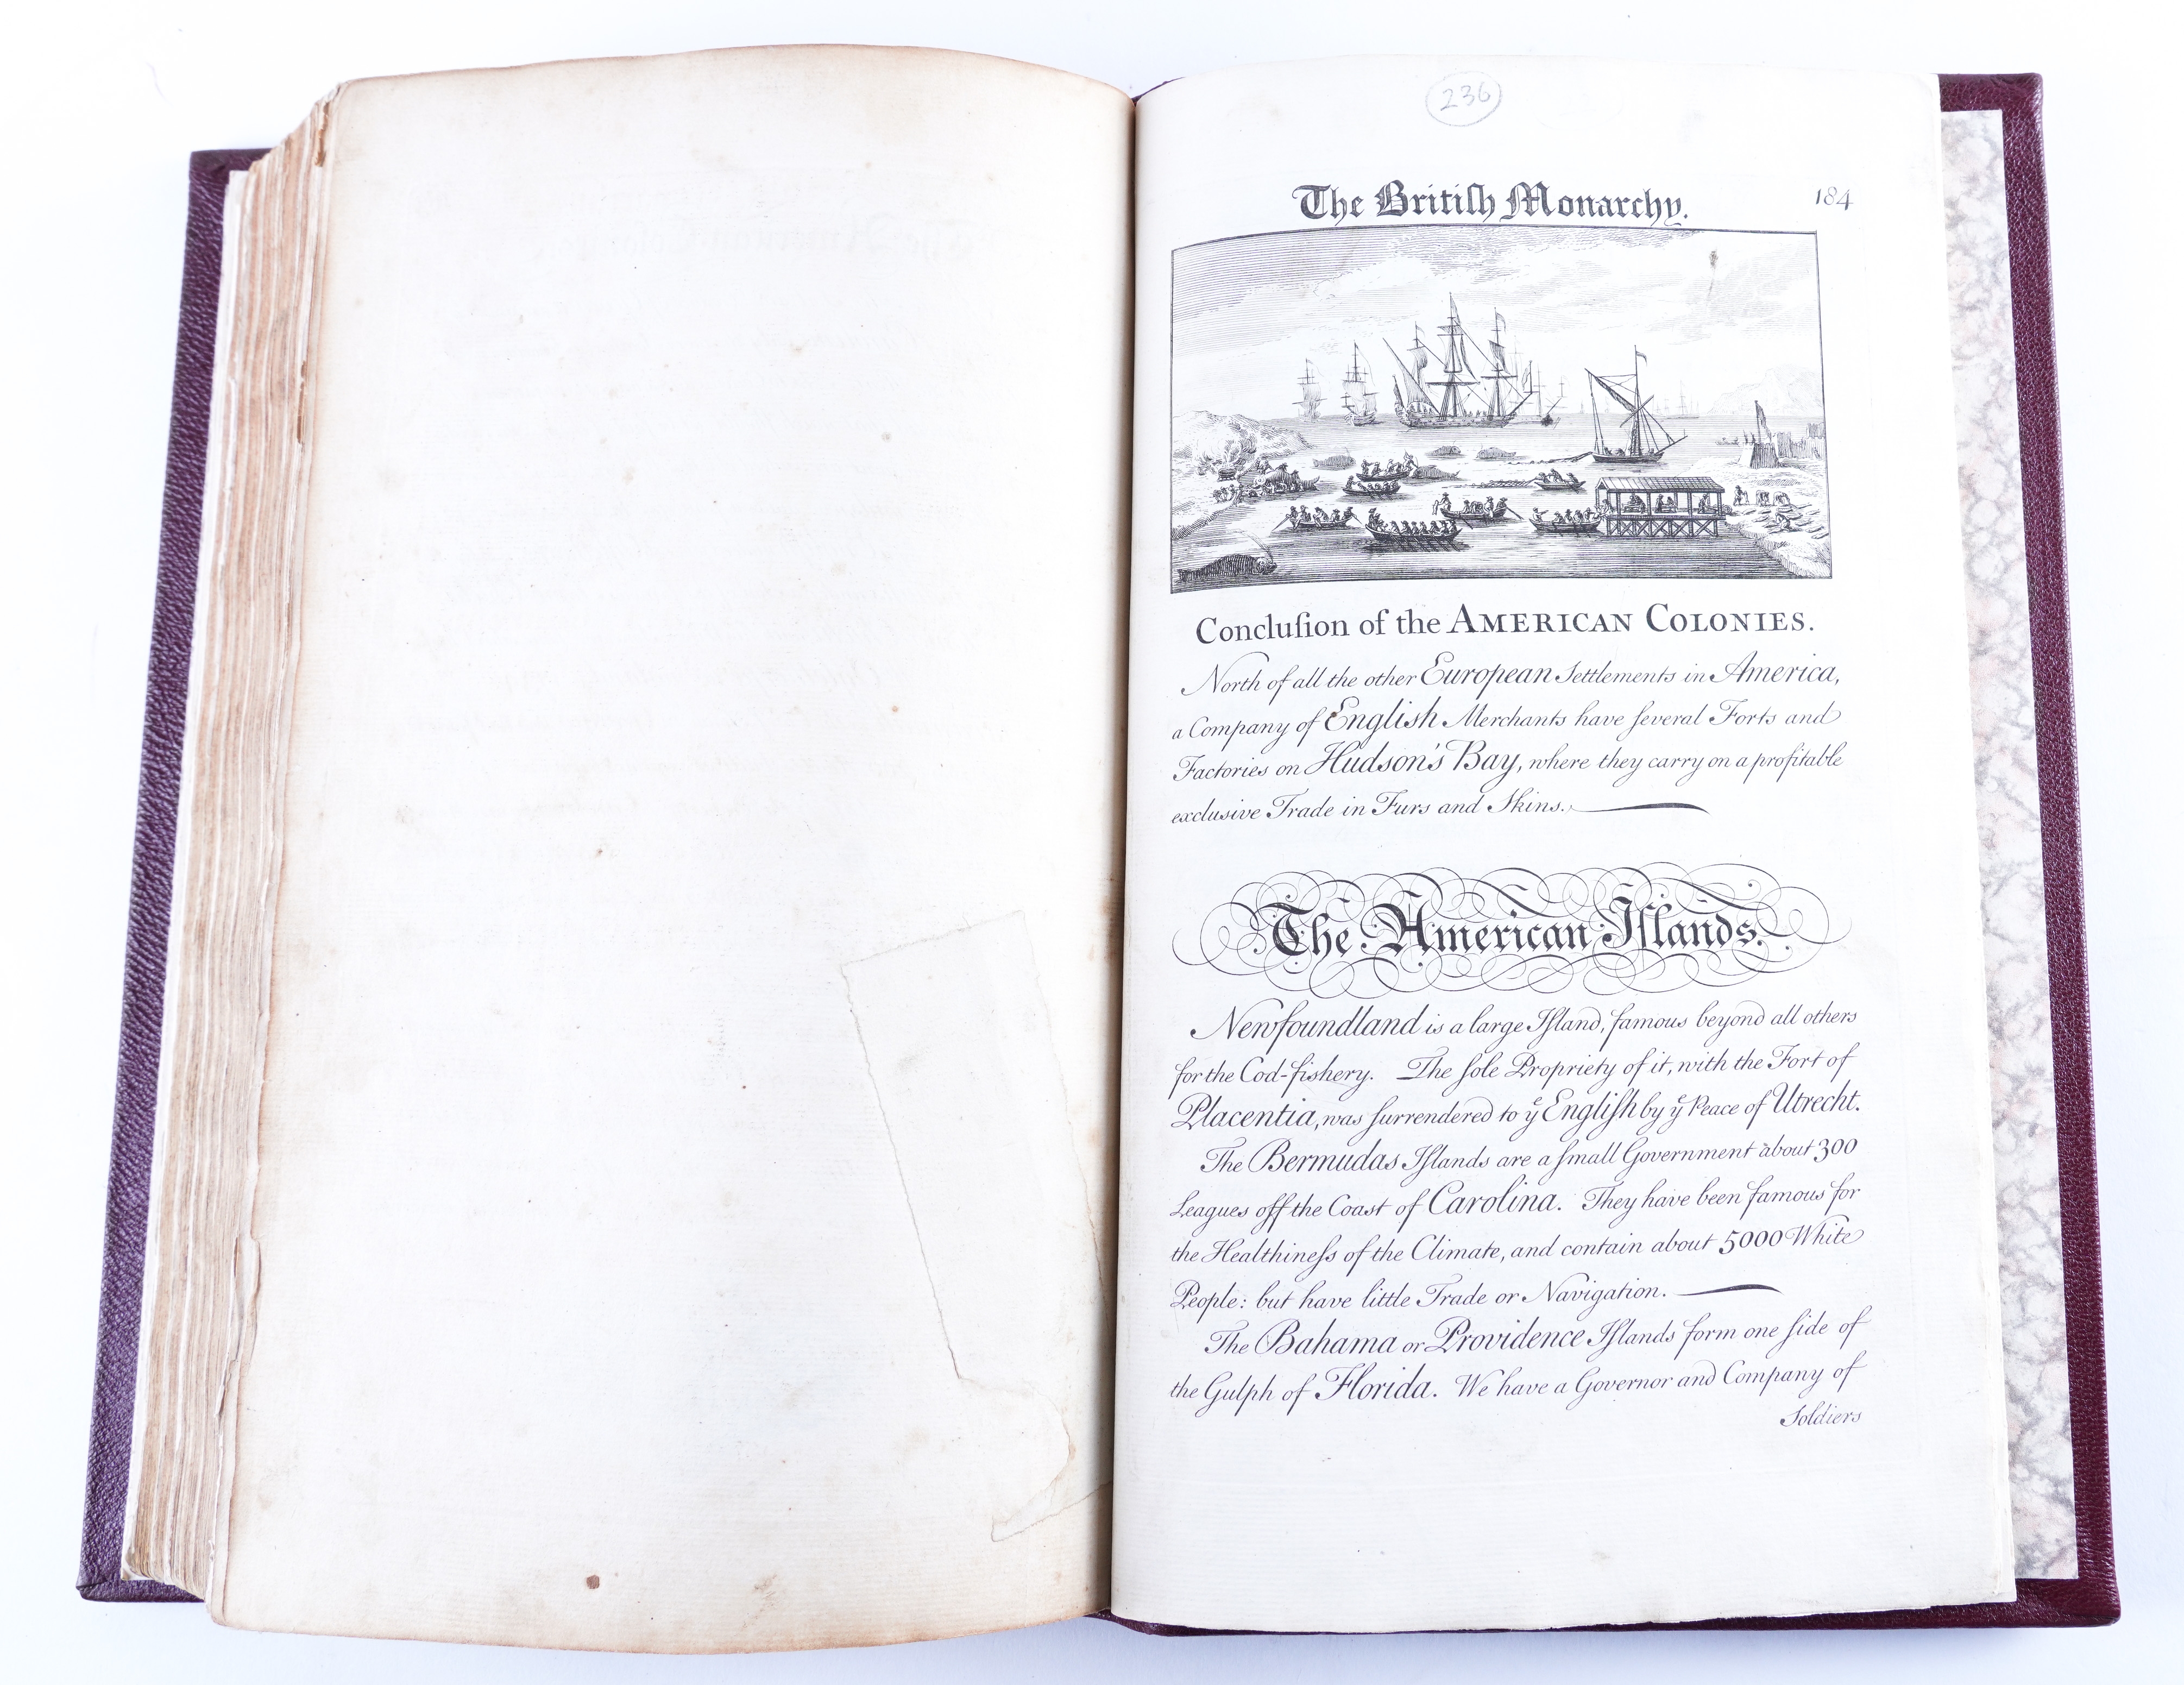 236
The Britiſh Monarchy.
184
Concluſion of the AMERICAN COLONIES.
North of all the other European Settlements in America,
a Company of English Merchants have ſeveral Forts and
Factories on Hudson's Bay, where they carry on a profitable
exclusive Trade in Furs and Skins.
The American Iſlands.
Newfoundland is a large Iſland, famous beyond all others
for the Cod-fishery. The ſole Propriety of it, with the Fort of
Placentia, was ſurrendered to yͤ Engliſh by yͤ Peace of Utrecht.
The Bermudas Iſlands are a ſmall Government about 300
Leagues off the Coast of Carolina. They have been famous for
the Healthineſs of the Climate, and contain about 5000 White
People: but have little Trade or Navigation.
The Bahama or Providence Iſlands form one ſide of
the Gulph of Florida. We have a Governor and Company of
Soldiers